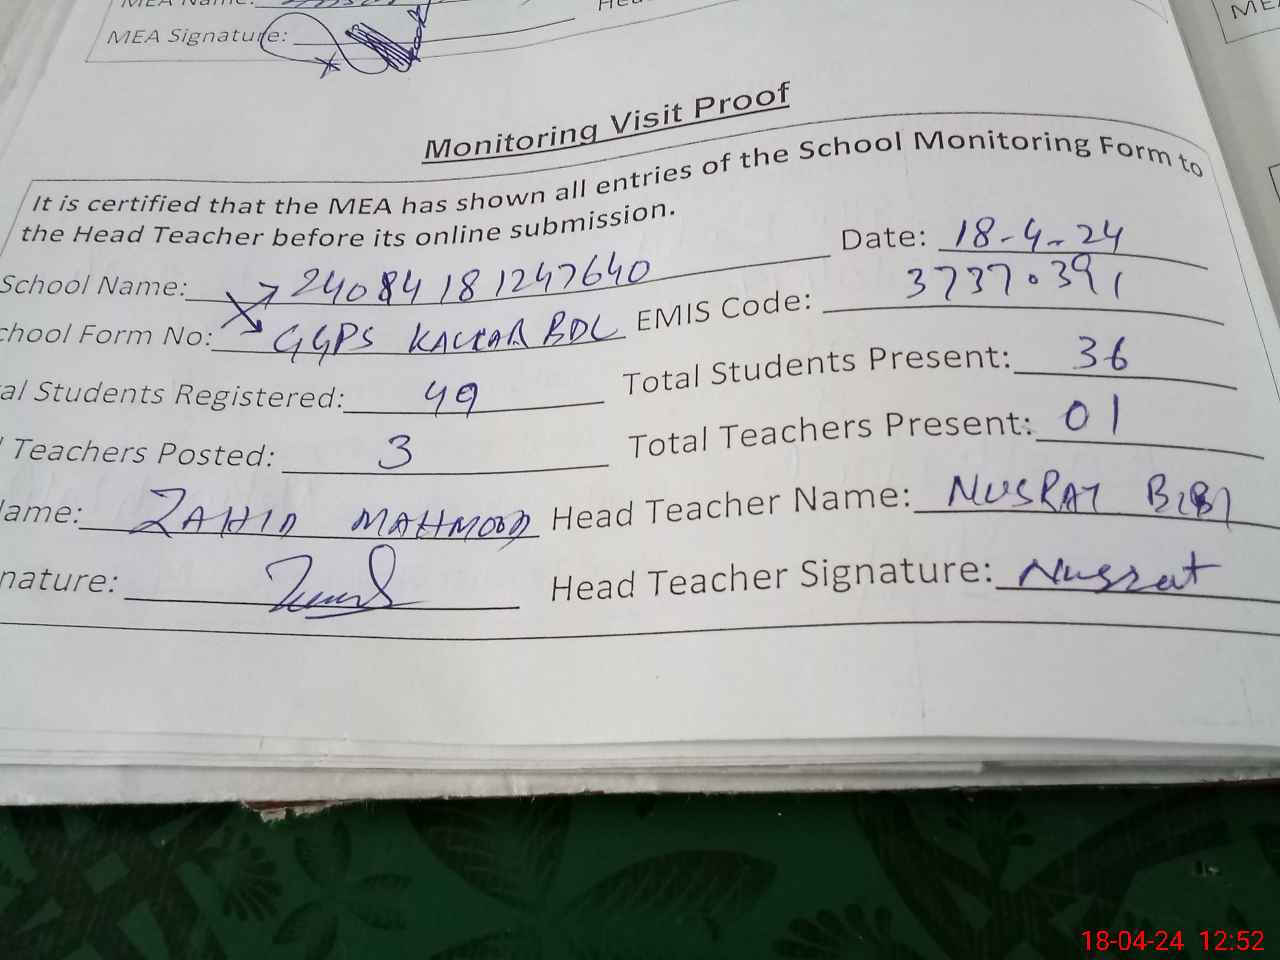 MEA Name:
MEA Signature:
Monitoring Visit Proof
It is certified that the MEA has shown all entries of the School Monitoring Form to
the Head Teacher before its online submission.
Date: 18-4-24
School Name: 24084181247640
EMIS Code: 37370391
chool Form No: GGPS KALYAR BDL
al Students Registered: 49
Total Students Present: 36
Teachers Posted: 3
Total Teachers Present: 01
ame: ZAHID MAHMOOD
Head Teacher Name: NUSRAT BIBI
nature:
Head Teacher Signature: Nusrat
18-04-24 12:52